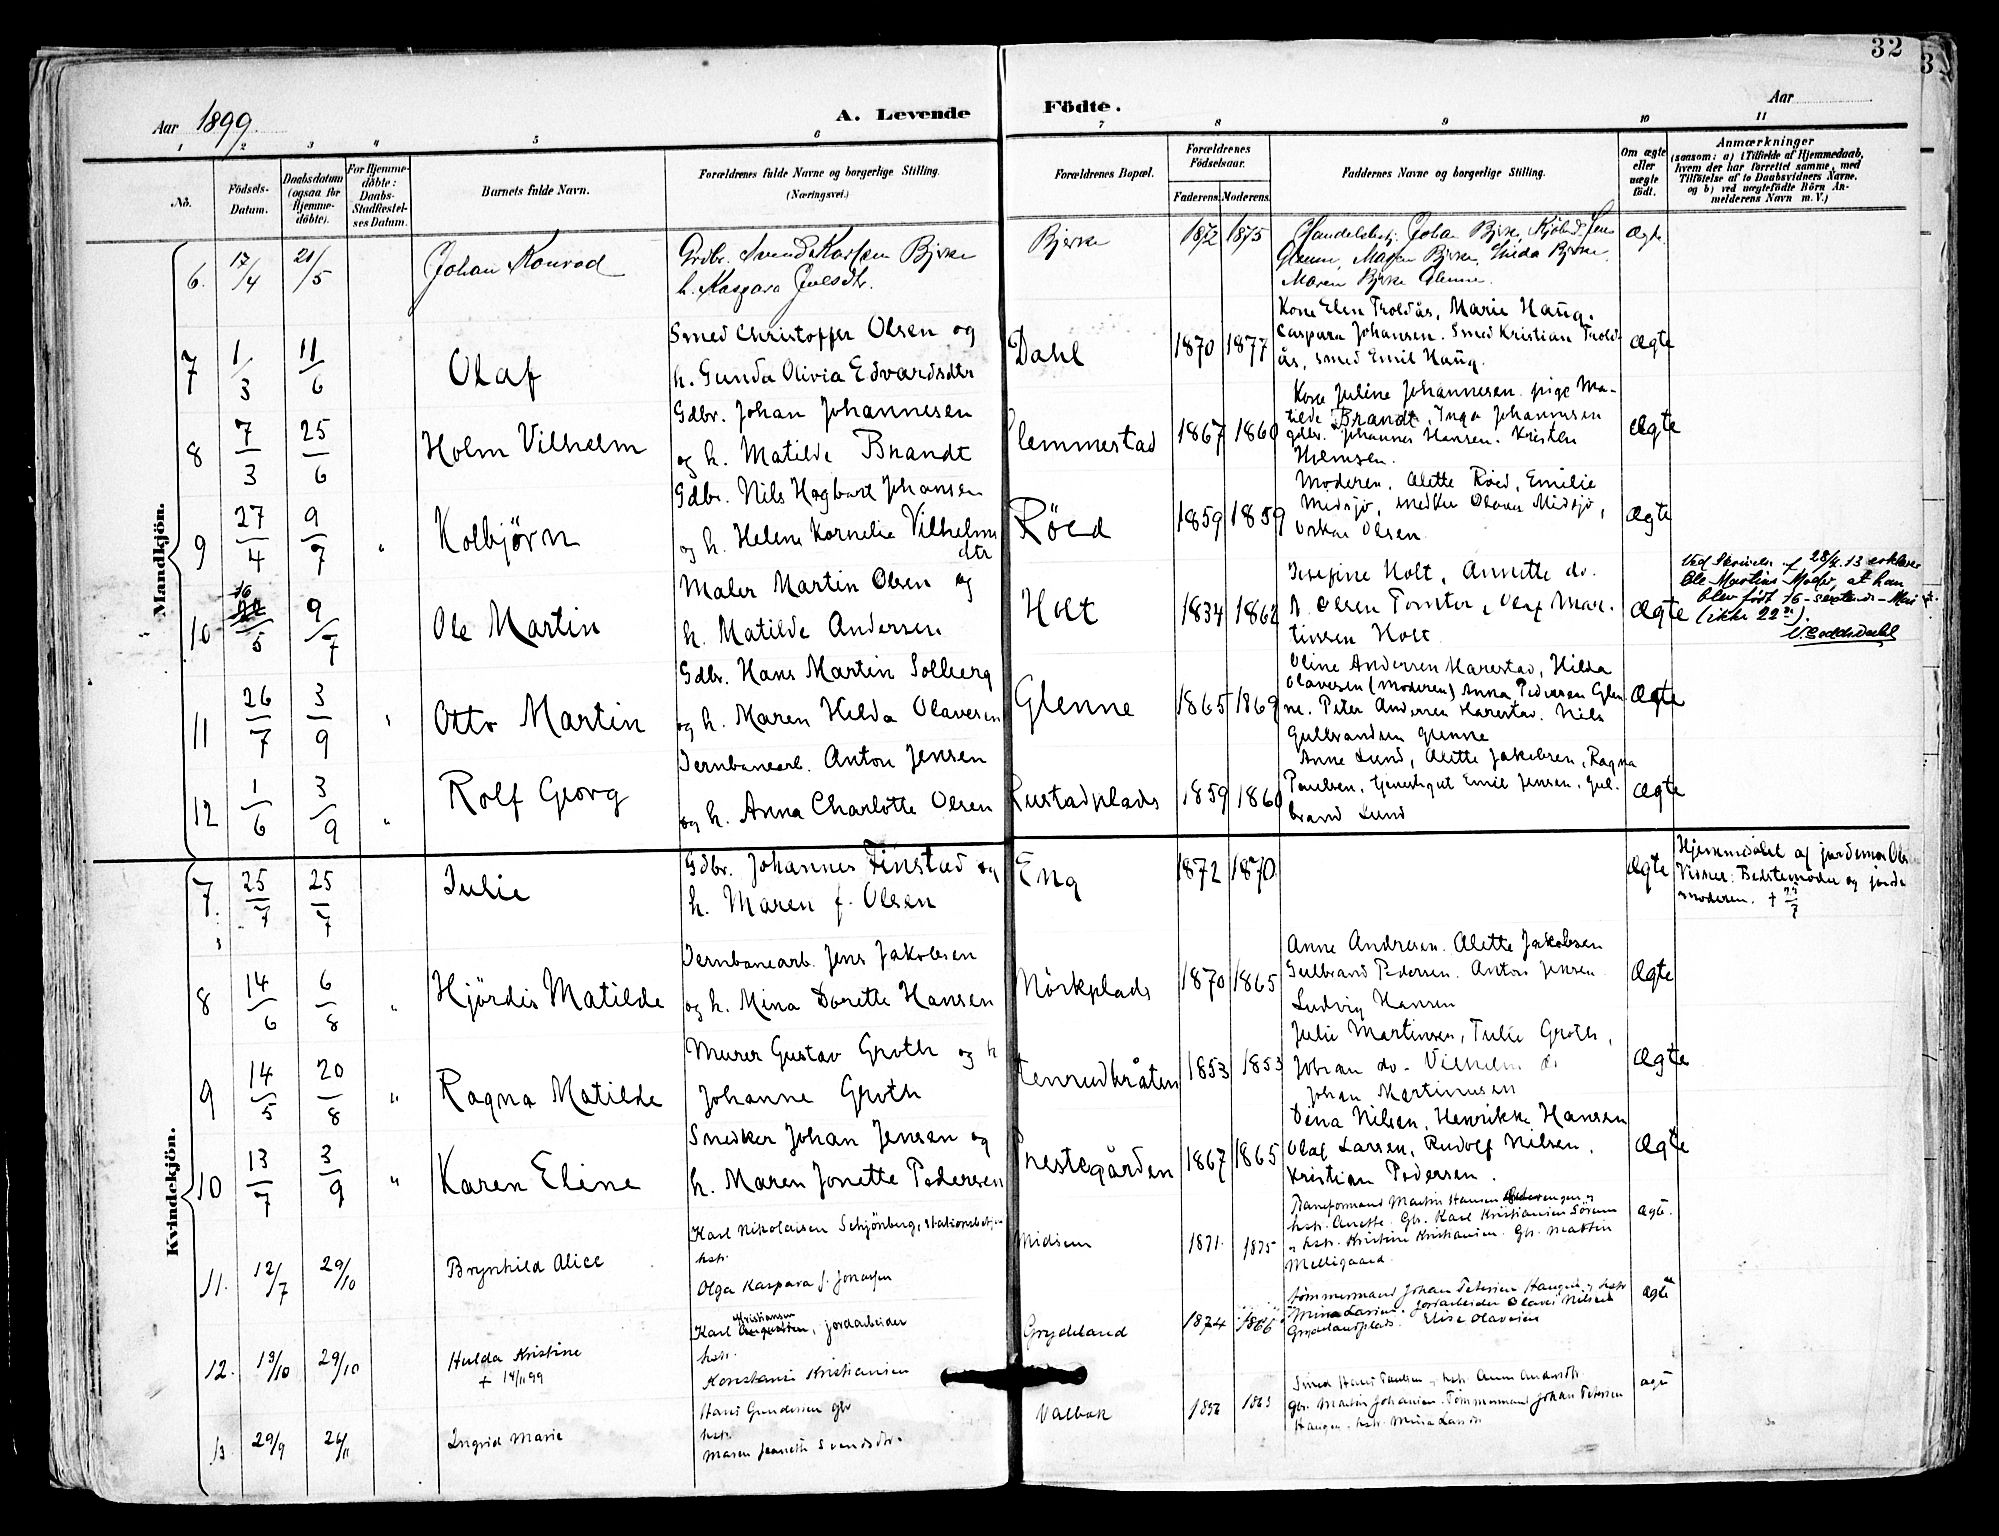 32
3
Aar 1899.
A. Levende Födte.
Aar
1 2 3 4 5 6 7 8 9 10 11
No.
Födsels-Datum.
Daabsdatum (ogsaa for Hjemmedöbte).
For Hjemmedöbte: Daabs-Stadfestelses Datum.
Barnets fulde Navn.
Forældrenes fulde Navne og borgerlige Stilling. (Næringsvei.)
Forældrenes Bopæl.
Forældrenes Födselsaar.
Faderens. Moderens.
Faddernes Navne og borgerlige Stilling.
Om ægte eller uægte födt.
Anmærkninger
(saasom: a) i Tilfælde af Hjemmedaab, hvem der har forrettet samme, med Tilföielse af to Daabsvidners Navne, og b) ved uægtefödte Börn Anmelderens Navn m. V.)
Mandkjön.
6. 17/4 21/5 Johan Konrad
Grdbr. Svend Karlsen Bjerke
h. Kaspara Julsdtr.
Bjerke 1872 1875
Handelsbetj. Johan Bjerke
Glenne, Maren Bjerke
Maren Bjerke Glenne.
ægte
7 1/3 11/6 Olaf
Smed Christoffer Olsen og
h. Gunda Olivia Edvardsdtr
Dahl 1870 1877
Kone Elen Troldås, Marie Haug.
Caspara Johansen. Smed Kristian Trold-
ås, smed Emil Haug.
ægte
8 7/3 25/6 Holm Vilhelm
Gdbr. Johan Johannesen
og h. Matilde Brandt
Slemmestad 1867 1860
Kone Juline Johannesen pige Ma-
tilde Brandt, Inga Johannesen
gdbr. Johannes Hansen. Kristen
ægte
9 27/4 9/7 " Kolbjörn
Gdbr. Nils Hagbart Johansen
og h. Helene Kornelia Vilhelms
dtr
Röed 1859 1859
Moderen, Alette Röed, Emilie
Midsjö, snedker Oskar Midsjö,
Oskar Olsen.
ægte
10 16/5 9/7 Ole Martin
Maler Martin Olsen og
h. Matilde Andersen
Holt 1834 1862
Josefine Holt, Annette do.
A. Olsen Tomter, Olaf Mar-
tinsen Holt
ægte
Ved Skrivelse af 28/4 13 erklærer
Ole Martins Moder, at han
blev födt 16 - sextende - Mai
(ikke 22de).
11 26/7 3/9 " Otto Martin
Gdbr. Hans Martin Solberg
og h. Maren Hilda Olavesen
Glenne 1865 1869
Oline Andersen Harestad, Hilda
Olavesen (Moderen) Anna Pedersen Glen-
ne. Peter Andersen Harestad. Nils
Gulbrandsen Glenne
ægte
12 1/6 3/9 " Rolf Georg
Jernbanearb. Anton Jensen
og h. Anna Charlotte Olsen
Rustadplads 1859 1860
Anne Lund, Alette Jakobsen, Ragna
Paulsen, tjenestegut Emil Jensen, Gul-
brand Lund
ægte
Kvindekjön.
7 25/7 25/7 Julie
Gdbr. Johannes Finstad og
h. Maren f. Olsen
Eng 1872 1870
ægte
Hjemmedöbt af jordemor Olsen
Vidner: Bedstemoder og jorde
moderen. † 25/7
8 14/6 6/8 " Hjördis Matilde
Jernbanearb. Jens Jakobsen
og h. Mina Dorette Hansen
Mörkplads 1870 1865
Anne Andresen. Alette Jakobsen
Gulbrand Pedersen. Anton Jensen.
Ludvig Hansen
ægte
9 14/5 20/8 " Ragna Matilde
Murer Gustav Groth og h
Johanne Groth
Stenrudbråten 1853 1853
Julie Martinsen, Julie Groth,
Johan do. Vilhelm do
Johan Martinsen
ægte
10 13/7 3/9 " Karen Eline
Snedker Johan Jensen og
h. Maren Jonette Pedersen
Prestegården 1867 1865
Dina Nilsen, Henrikke Hansen
Olaf Larsen, Rudolf Nilsen,
Kristian Pedersen.
ægte
11. 12/7 29/10 Brynhild Alice
Karl Nikolaisen Schjönberg, stationsbetj.
hstr.
Olga Kaspara f. Jonassen
Midsem 1871. 1875
Baneformand Martin Hansen
hstr. Anette. Gbr. Karl Kristiansen Sörum
og hstr. Kristine Kristiansen. Gbr. Martin
Melligaard.
ægte.
12. 13/10 29/10 Hulda Kristine
† 14/11 99
Karl Kristiansen, jordarbeider
hstr.
Konstanse Kristiansen
Grydeland 1874 1866
Tömmermand Johan Petersen Haugen og hstr
Mina Larsen. Jordarbeider Olaves Nilsen
Grydelandsplads. Elise Olavesen
ægte
13. 29/9 26/11 Ingrid Marie
Hans Gundersen gbr
hstr.
Maren Jeaneth Svendsdtr.
Valbæk 1856 1863
Smed Hans Paulsen og hstr. Anna Andersdtr.
Gbr. Martin Johansen. Tömmermand Johan Petersen
Haugen. hstr. Mina Larsen
ægte